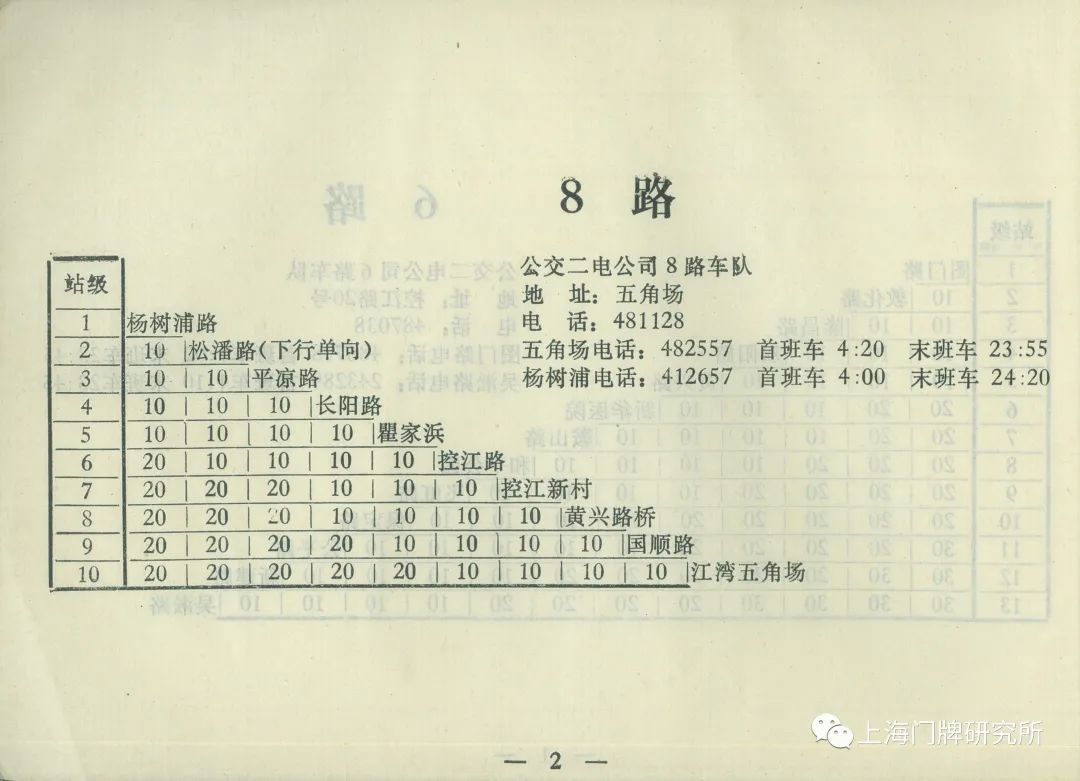 8 路
公交二电公司8路车队
地 址：五角场
电 话：481128
五角场电话：482557 首班车 4:20 末班车 23:55
杨树浦电话：412657 首班车 4:00 末班车 24:20
站级
1 杨树浦路
2 10 松潘路(下行单向)
3 10 10 平凉路
4 10 10 10 长阳路
5 10 10 10 10 瞿家浜
6 20 10 10 10 10 控江路
7 20 20 20 10 10 10 控江新村
8 20 20 20 10 10 10 10 黄兴路桥
9 20 20 20 20 10 10 10 10 国顺路
10 20 20 20 20 20 10 10 10 10 江湾五角场
— 2 —
上海门牌研究所